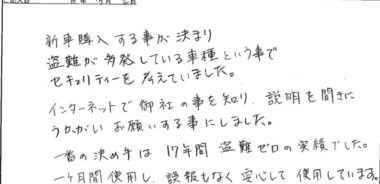 新車購入する事が決まり
盗難が多発している車種という事で
セキュリティーを考えていました。
インターネットで御社の事を知り、説明を聞きに
うかがい お願いする事にしました。
一番の決め手は 17年間 盗難ゼロの実績でした。
一ヶ月間使用し、誤報もなく安心して使用しています。